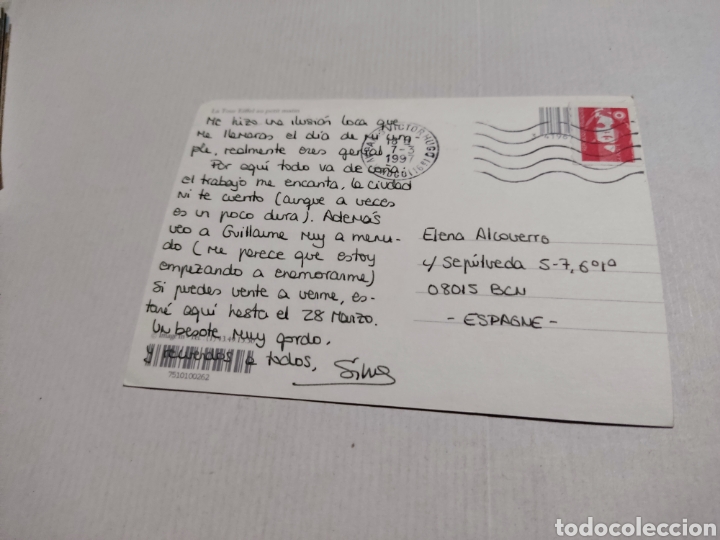 La Tour Eiffel
Me hizo una ilusión loca que
me llamaras el día de mi cum-
ple, realmente eres genial.
Por aquí todo va de coña,
el trabajo me encanta, la ciudad
ni te cuento (aunque a veces
es un poco dura). Además
veo a Guillaume muy a menu-
do (me parece que estoy
empezando a enamorarme)
Si puedes vente a verme, es-
taré aquí hasta el 28 Marzo.
Un besote, muy gordo,
y recuerdos a todos,
7510100262
VICTOR HUGO
7-3
1997
Elena Alcoverro
c/ Sepúlveda 5-7, 6º1ª
08015 BCN
- ESPAGNE -
todocoleccion